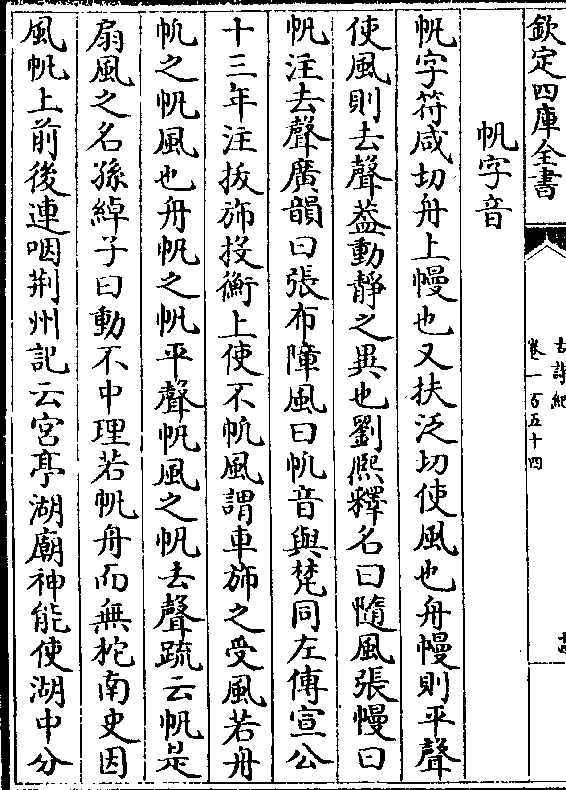 欽定四庫全書
古詩紀
卷一百五十四
帆字音
帆字符咸切舟上幔也又扶泛切使風也舟幔則平聲
使風則去聲葢動靜之異也劉熙釋名曰隨風張幔曰
帆注去聲廣韻曰張布障風曰帆音與梵同左傳宣公
十三年注拔斾投衡上使不帆風謂車斾之受風若舟
帆之帆風也舟帆之帆平聲帆風之帆去聲疏云帆是
扇風之名孫綽子曰動不中理若帆舟而無柁南史因
風帆上前後連咽荆州記云宮亭湖廟神能使湖中分